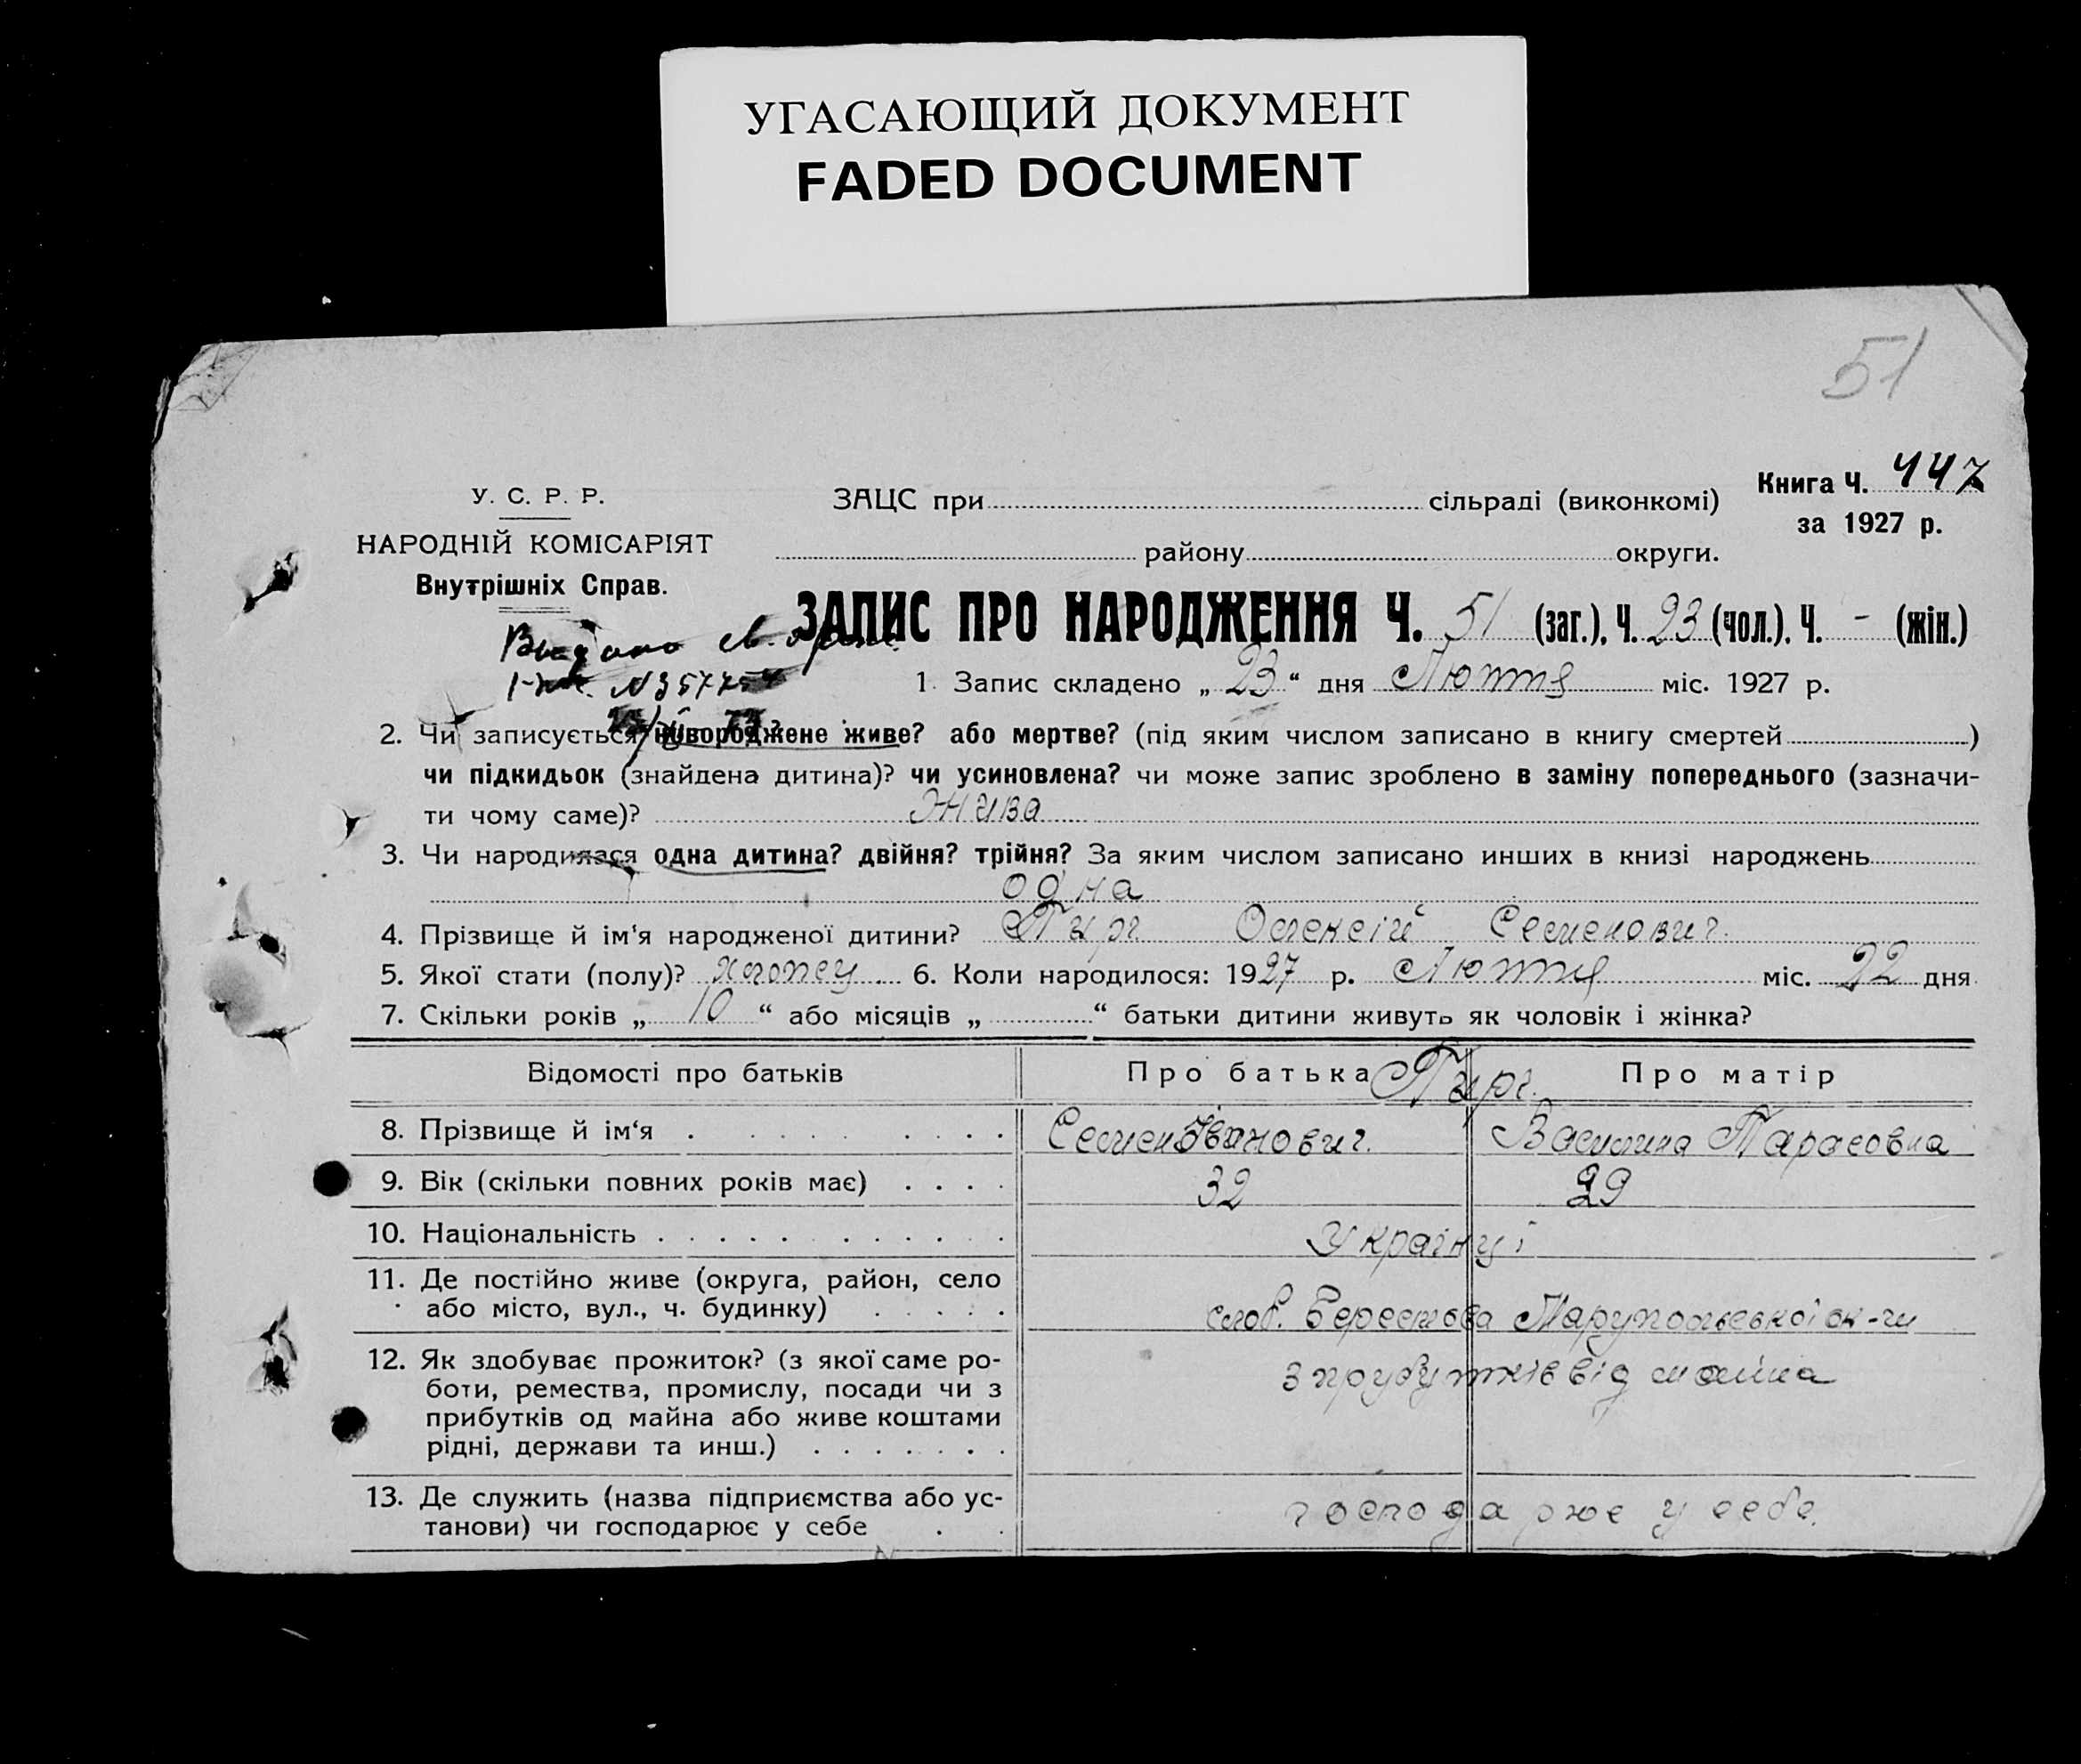 УГАСАЮЩИЙ ДОКУМЕНТ
FADED DOCUMENT
51
Книга Ч. 447
за 1927 р.
У. С. Р. Р.
НАРОДНІЙ КОМІСАРІЯТ
Внутрішніх Справ.
ЗАЦС при сільраді (виконкомі)
району округи.
ЗАПИС ПРО НАРОДЖЕННЯ Ч. 51 (заг.), Ч. 23 (чол.), Ч. - (жін.)
Выдано
N 357754
1. Запис складено „ 23 “ дня Люття міс. 1927 р.
2. Чи записується новороджене живе? або мертве? (під яким числом записано в книгу смертей )
чи підкидьок (знайдена дитина)? чи усиновлена? чи може запис зроблено в заміну попереднього (зазначи-
ти чому саме)? Жива
3. Чи народилася одна дитина? двійня? трійня? За яким числом записано инших в книзі народжень
одна
4. Прізвище й ім‘я народженої дитини? Пирг Олексій Семенович
5. Якої стати (полу)? хлопец 6. Коли народилося: 1927 р. Люття міс. 22 дня
7. Скільки років „ 10 “ або місяців „ “ батьки дитини живуть як чоловік і жінка?
Відомості про батьків Про батька Про матір
Пирг.
8. Прізвище й ім‘я Семен Іванович. Василина Тарасовна
9. Вік (скільки повних років має) 32 29
10. Національність Українці
11. Де постійно живе (округа, район, село
або місто, вул., ч. будинку) слоб. Берестова Маруполєвскої ок-ги
12. Як здобуває прожиток? (з якої саме ро-
боти, ремества, промислу, посади чи з
прибутків од майна або живе коштами
рідні, держави та инш.) з прубутків від маіна
13. Де служить (назва підприємства або ус-
танови) чи господарює у себе господарює у себе.